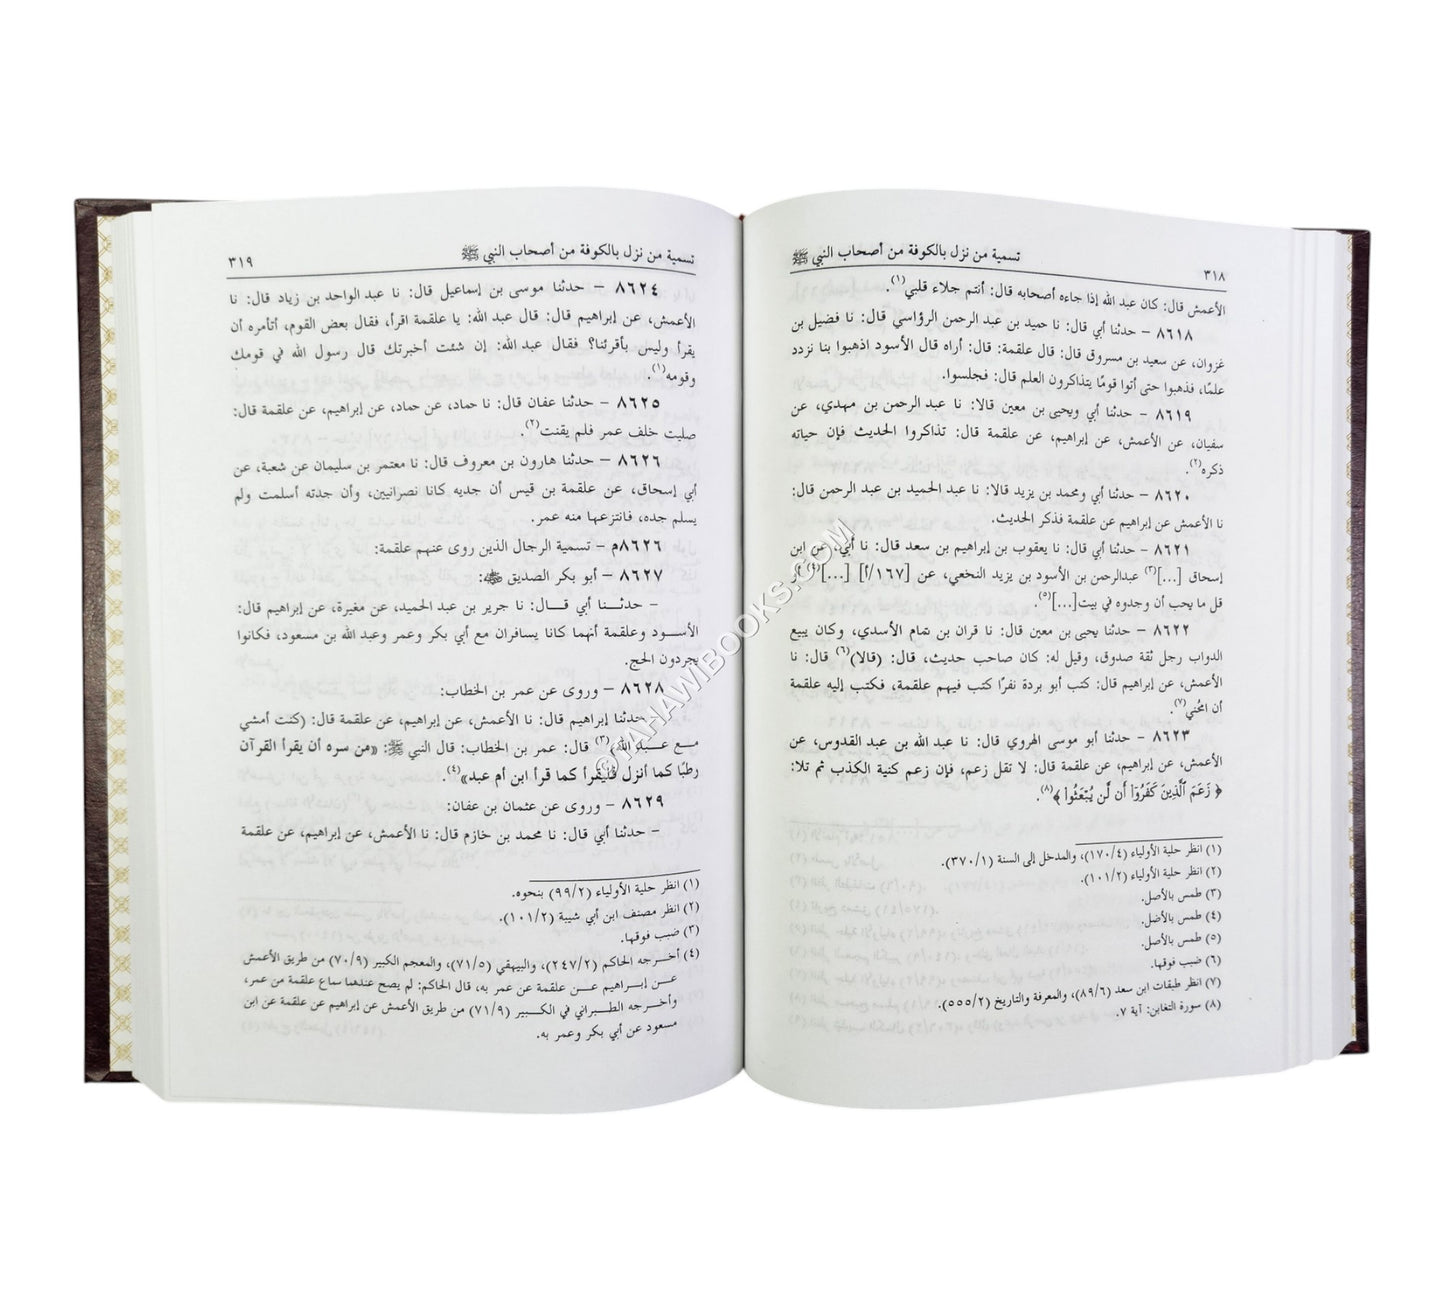 ٣١٨
تسمية من نزل بالكوفة من أصحاب النبي ﷺ
الأعمش قال: كان عبد الله إذا جاءه أصحابه قال: أنتم جلاء قلبي(١).
٨٦١٨ – حدثنا أبي قال: نا حميد بن عبد الرحمن الرؤاسي قال: نا فضيل بن
غزوان، عن سعيد بن مسروق قال: قال علقمة: قال: أراه قال الأسود اذهبوا بنا نزدد
علمًا، فذهبوا حتى أتوا قومًا يتذاكرون العلم قال: فجلسوا.
٨٦١٩ – حدثنا أبي ويحيى بن معين قالا: نا عبد الرحمن بن مهدي، عن
سفيان، عن الأعمش، عن إبراهيم، عن علقمة قال: تذاكروا الحديث فإن حياته
ذكره(٢).
٨٦٢٠ – حدثنا أبي ومحمد بن يزيد قالا: نا عبد الحميد بن عبد الرحمن قال:
نا الأعمش عن إبراهيم عن علقمة فذكر الحديث.
٨٦٢١ – حدثنا أبي قال: نا يعقوب بن إبراهيم بن سعد قال: نا أبي، عن ابن
إسحاق [...](٣) عبدالرحمن بن الأسود بن يزيد النخعي، عن [١٦٧/أ] [...](٤) أو
قل ما يحب أن وجدوه في بيت[...](٥).
٨٦٢٢ – حدثنا يحيى بن معين قال: نا قران بن تمام الأسدي، وكان يبيع
الدواب رجل ثقة صدوق، وقيل له: كان صاحب حديث، قال: (قالا)(٦) قال: نا
الأعمش، عن إبراهيم قال: كتب أبو بردة نفرًا كتب فيهم علقمة، فكتب إليه علقمة
أن امحُني(٧).
٨٦٢٣ – حدثنا أبو موسى الهروي قال: نا عبد الله بن عبد القدوس، عن
الأعمش، عن إبراهيم، عن علقمة قال: لا تقل زعم، فإن زعم كنية الكذب ثم تلا:
﴿ زَعَمَ ٱلَّذِينَ كَفَرُوٓاْ أَن لَّن يُبۡعَثُواْ ﴾(٨).
(١) انظر حلية الأولياء (١٧٠/٤)، والمدخل إلى السنة (٣٧٠/١).
(٢) انظر حلية الأولياء (١٠١/٢).
(٣) طمس بالأصل.
(٤) طمس بالأصل.
(٥) طمس بالأصل.
(٦) ضبب فوقها.
(٧) انظر طبقات ابن سعد (٨٩/٦)، والمعرفة والتاريخ (٥٥٥/٢).
(٨) سورة التغابن: آية ٧.
تسمية من نزل بالكوفة من أصحاب النبي ﷺ
٣١٩
٨٦٢٤ – حدثنا موسى بن إسماعيل قال: نا عبد الواحد بن زياد قال: نا
الأعمش، عن إبراهيم قال: قال عبد الله: يا علقمة اقرأ، فقال بعض القوم، أتأمره أن
يقرأ وليس بأقرئنا؟ فقال عبد الله: إن شئت أخبرتك قال رسول الله في قومك
وقومه(١).
٨٦٢٥ – حدثنا عفان قال: نا حماد، عن حماد، عن إبراهيم، عن علقمة قال:
صليت خلف عمر فلم يقنت(٢).
٨٦٢٦ – حدثنا هارون بن معروف قال: نا معتمر بن سليمان عن شعبة، عن
أبي إسحاق، عن علقمة بن قيس أن جديه كانا نصرانيين، وأن جدته أسلمت ولم
يسلم جده، فانتزعها منه عمر.
٨٦٢٦م – تسمية الرجال الذين روى عنهم علقمة:
٨٦٢٧ – أبو بكر الصديق ﷺ:
– حدثنا أبي قال: نا جرير بن عبد الحميد، عن مغيرة، عن إبراهيم قال:
الأسود وعلقمة أنهما كانا يسافران مع أبي بكر وعمر وعبد الله بن مسعود، فكانوا
يجردون الحج.
٨٦٢٨ – وروى عن عمر بن الخطاب:
حدثنا إبراهيم قال: نا الأعمش، عن إبراهيم، عن علقمة قال: (كنت أمشي
مع عبد الله)(٣) قال: عمر بن الخطاب: قال النبي ﷺ: «من سره أن يقرأ القرآن
رطبًا كما أنزل فليقرأ كما قرأ ابن أم عبد»(٤).
٨٦٢٩ – وروى عن عثمان بن عفان:
– حدثنا أبي قال: نا محمد بن خازم قال: نا الأعمش، عن إبراهيم، عن علقمة
(١) انظر حلية الأولياء (٩٩/٢) بنحوه.
(٢) انظر مصنف ابن أبي شيبة (١٠١/٢).
(٣) ضبب فوقها.
(٤) أخرجه الحاكم (٢٤٧/٢)، والبيهقي (٧١/٥)، والمعجم الكبير (٧٠/٩) من طريق الأعمش
عن إبراهيم عن علقمة عن عمر به، قال الحاكم: لم يصح عندهما سماع علقمة من عمر،
وأخرجه الطبراني في الكبير (٧١/٩) من طريق الأعمش عن إبراهيم عن علقمة عن ابن
مسعود عن أبي بكر وعمر به.
©TAHAWIBOOKS.COM